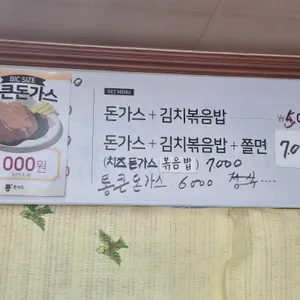 BIG SIZE
큰돈가스
000원
통돈가스
SET MENU
돈가스+김치볶음밥 ₩5,0
돈가스+김치볶음밥+쫄면 7.0
(치즈돈가스 볶음밥) 7000
통큰돈가스 6000 정식....